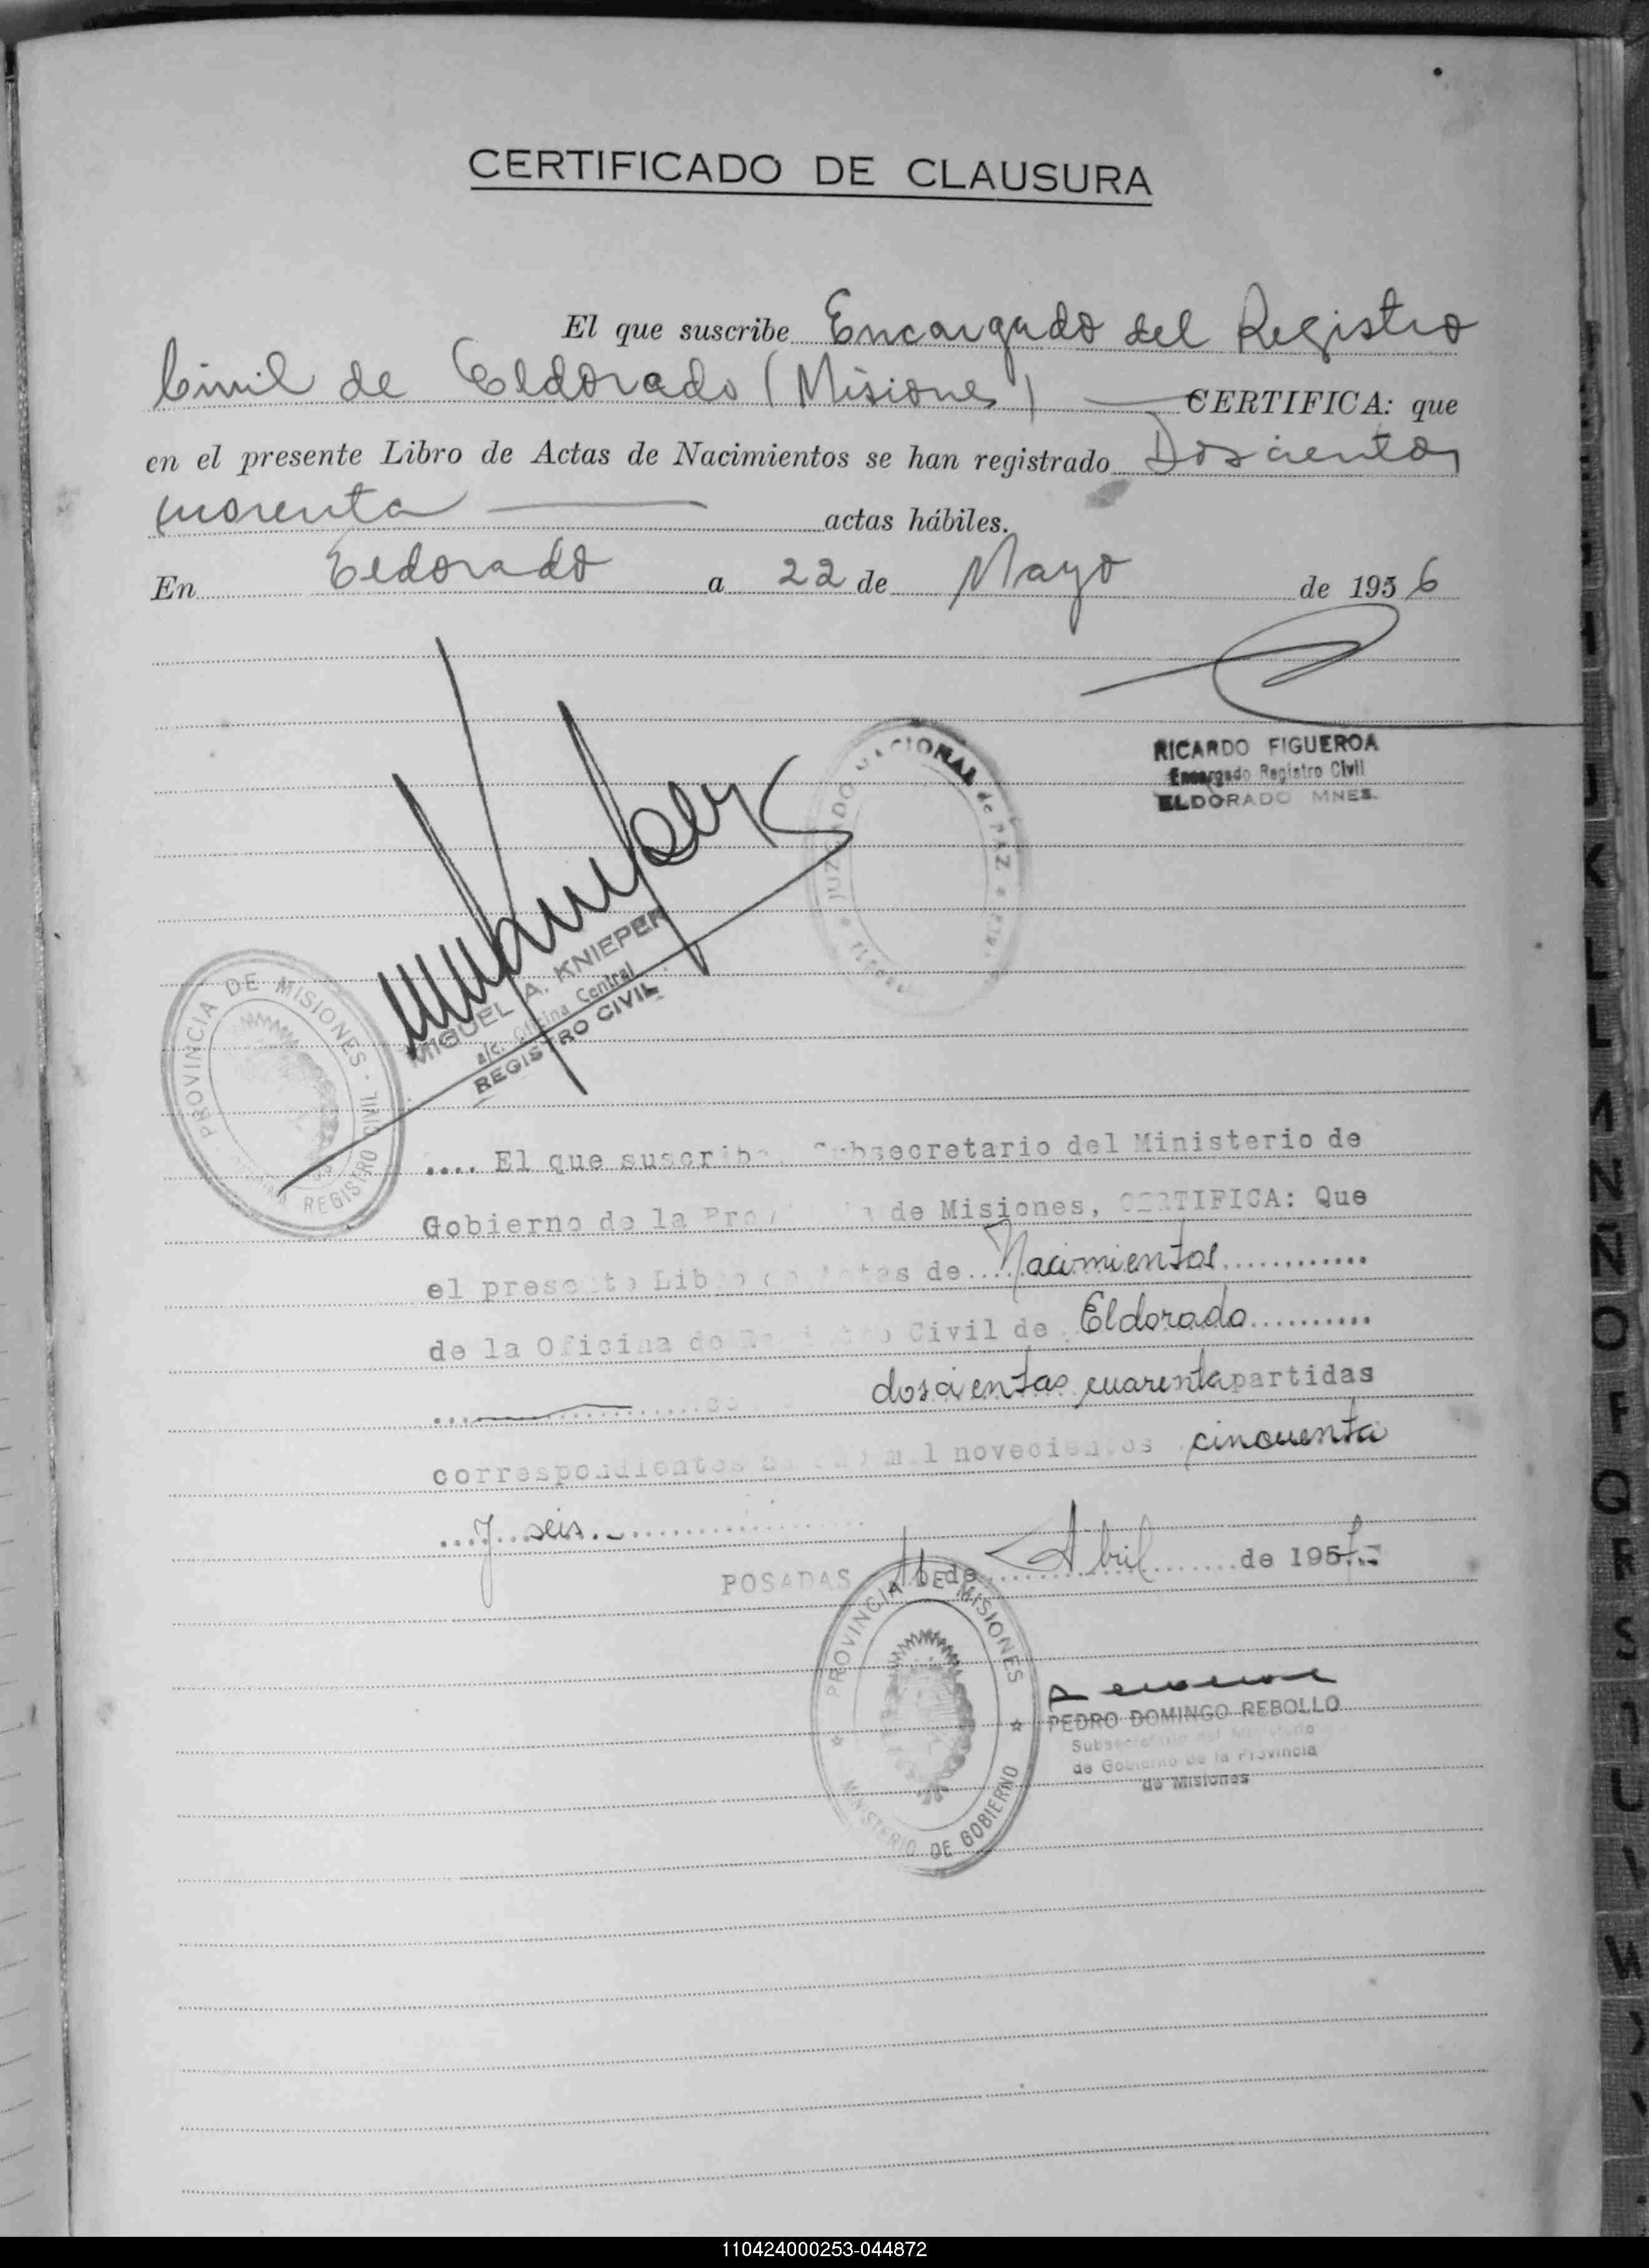 CERTIFICADO DE CLAUSURA
El que suscribe Encargado del Registro
Civil de Eldorado (Misiones) CERTIFICA: que
en el presente Libro de Actas de Nacimientos se han registrado Doscientas
cuarenta actas hábiles.
En Eldorado a 22 de Mayo de 1956
RICARDO FIGUEROA
Encargado Registro Civil
ELDORADO MNES.
JUZGADO NACIONAL de PAZ
MIGUEL A. KNIEPER
a/c. Oficina Central
REGISTRO CIVIL
PROVINCIA DE MISIONES - REGISTRO CIVIL
.... El que suscribe, Subsecretario del Ministerio de
Gobierno de la Provincia de Misiones, CERTIFICA: Que
el presente Libro de Actas de...Nacimientos............
de la Oficina de Registro Civil de Eldorado..........
doscientas cuarenta partidas
correspondientes mil novecientos cincuenta
...y...seis...............
POSADAS de Abril.......de 195
PROVINCIA DE MISIONES
MINISTERIO DE GOBIERNO
PEDRO DOMINGO REBOLLO
Subsecretario del Ministerio
de Gobierno de la Provincia
de Misiones
K
L
L
M
N
Ñ
O
P
Q
R
S
T
U
V
W
X
110424000253-044872